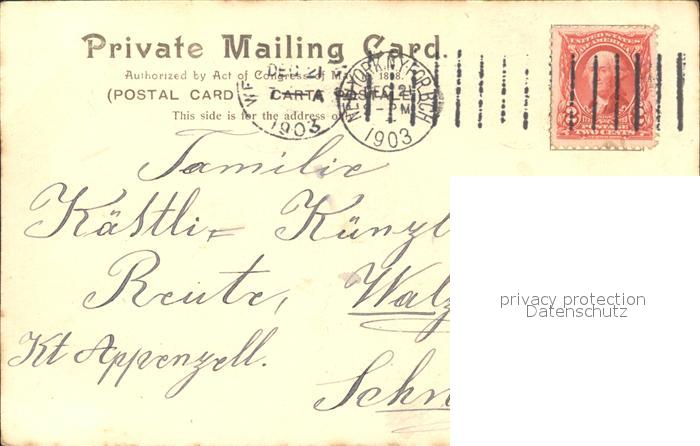 Private Mailing Card.
Authorized by Act of Congress of May 19, 1898.
(POSTAL CARD CARTA POSTALE
This side is for the address
DEC 21
1903
NEW YORK, N.Y. FOR. BCH
DEC 21
PM
1903
UNITED STATES
OF AMERICA
POSTAGE
TWO CENTS
Familie
Kästli= Künzl
Reute, Walz
Kt Appenzell.
Sch
privacy protection
Datenschutz